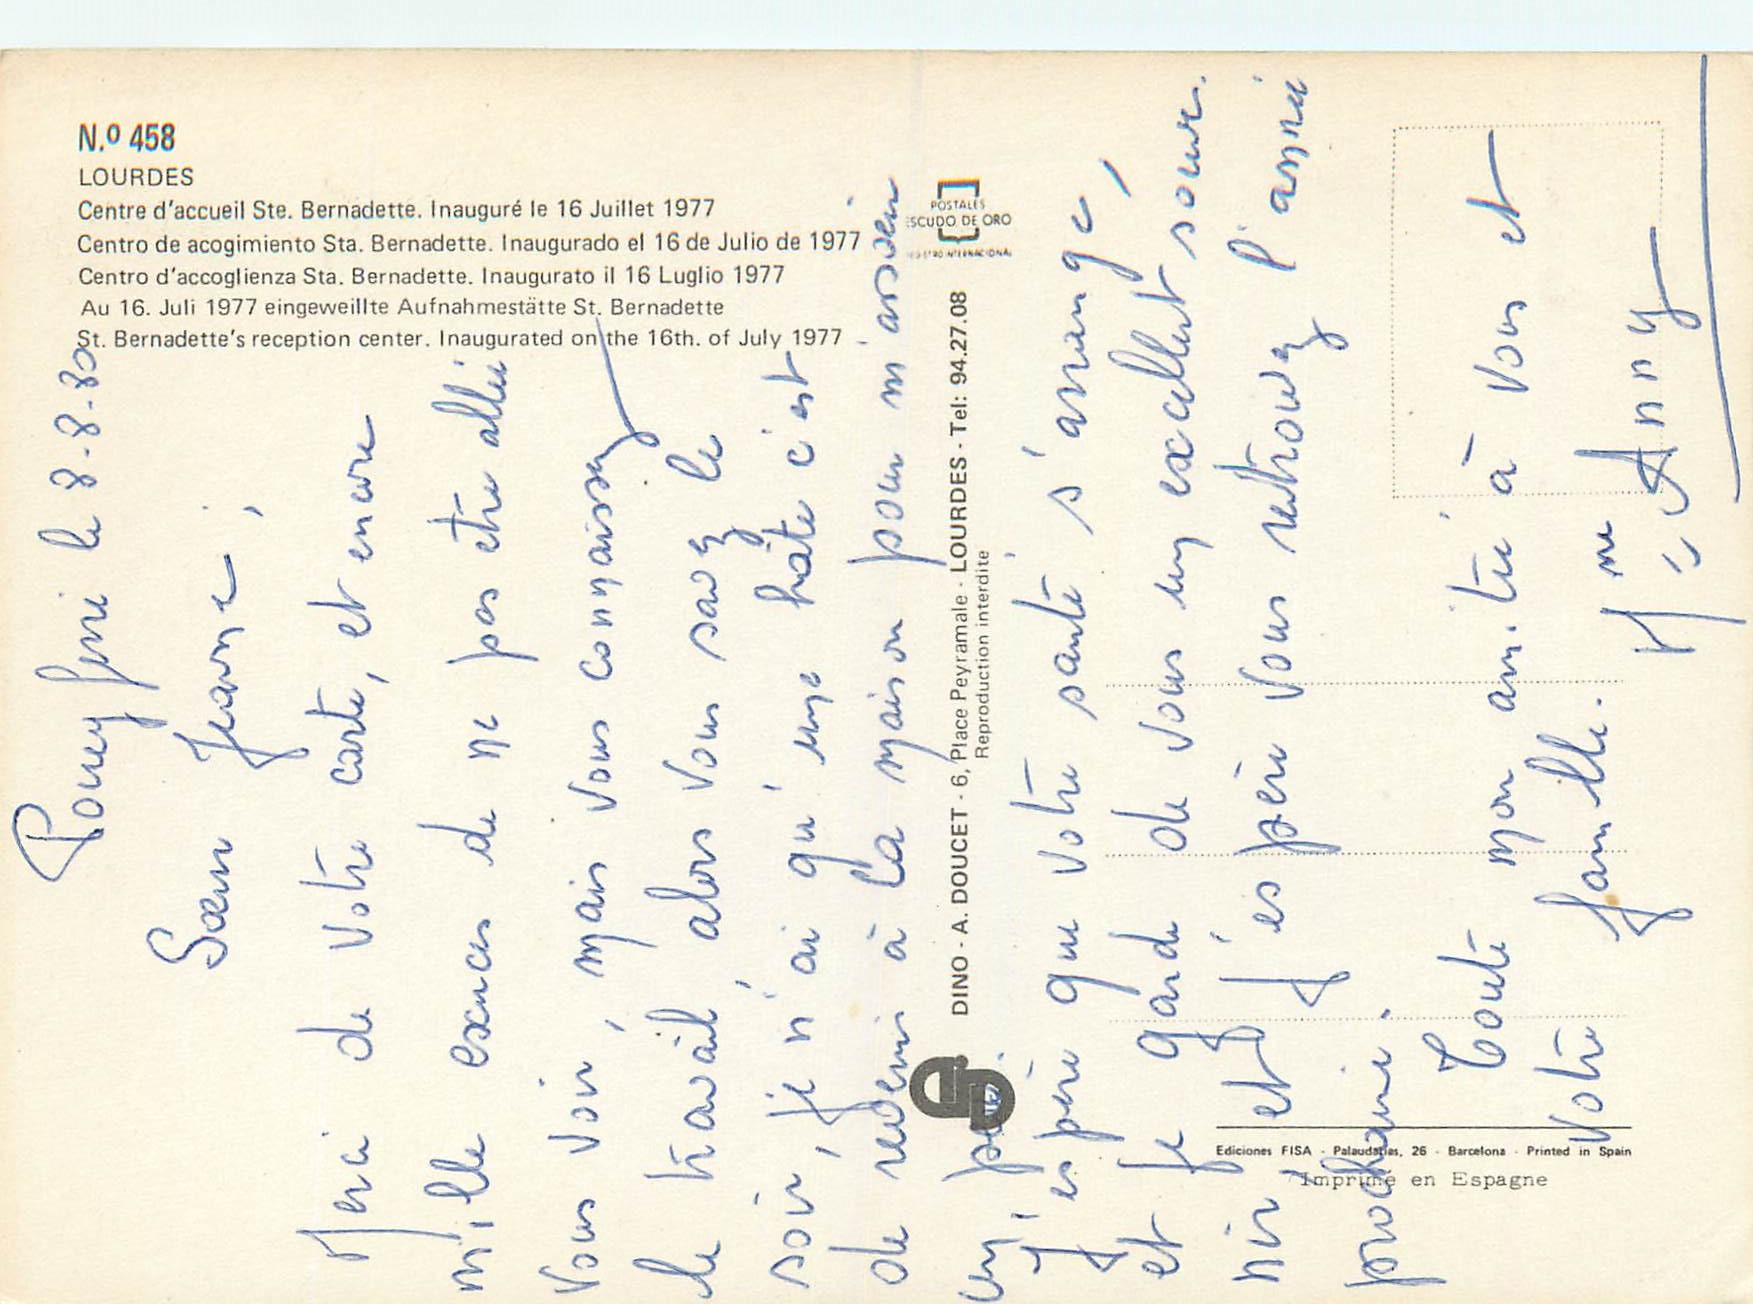 N.º 458
LOURDES
Centre d'accueil Ste. Bernadette. Inauguré le 16 Juillet 1977
Centro de acogimiento Sta. Bernadette. Inaugurado el 16 de Julio de 1977
Centro d'accoglienza Sta. Bernadette. Inaugurato il 16 Luglio 1977
Au 16. Juli 1977 eingeweillte Aufnahmestätte St. Bernadette
St. Bernadette's reception center. Inaugurated on the 16th. of July 1977
POSTALES
ESCUDO DE ORO
DINO - A. DOUCET - 6, Place Peyramale - LOURDES - Tel: 94.27.08
Reproduction interdite
Ediciones FISA - Palaudarias, 26 - Barcelona - Printed in Spain
Imprimé en Espagne
le 8-8-80
Sœur Jeanne,
Merci de votre carte, et encore
mille excuses de ne pas être allée
vous voir, mais vous connaissez
le travail, alors vous savez le
soir, je n'ai qu'une hâte c'est
de revenir à la maison pour m'asseoir
un peu.
J'espère que votre santé s'arrange,
et je garde de vous un excellent souve-
nir et j'espère vous retrouvez l'année
prochaine.
Toute mon amitié à vous et
votre famille.
Mme Anny